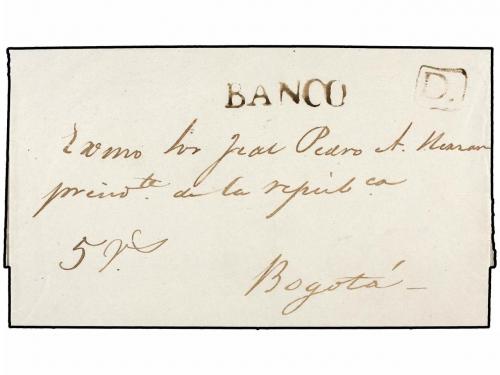 BANCO
D.
Exmo Sor Jral Pedro A. Herran
presidte. de la repúbca
5 rs
Bogotá